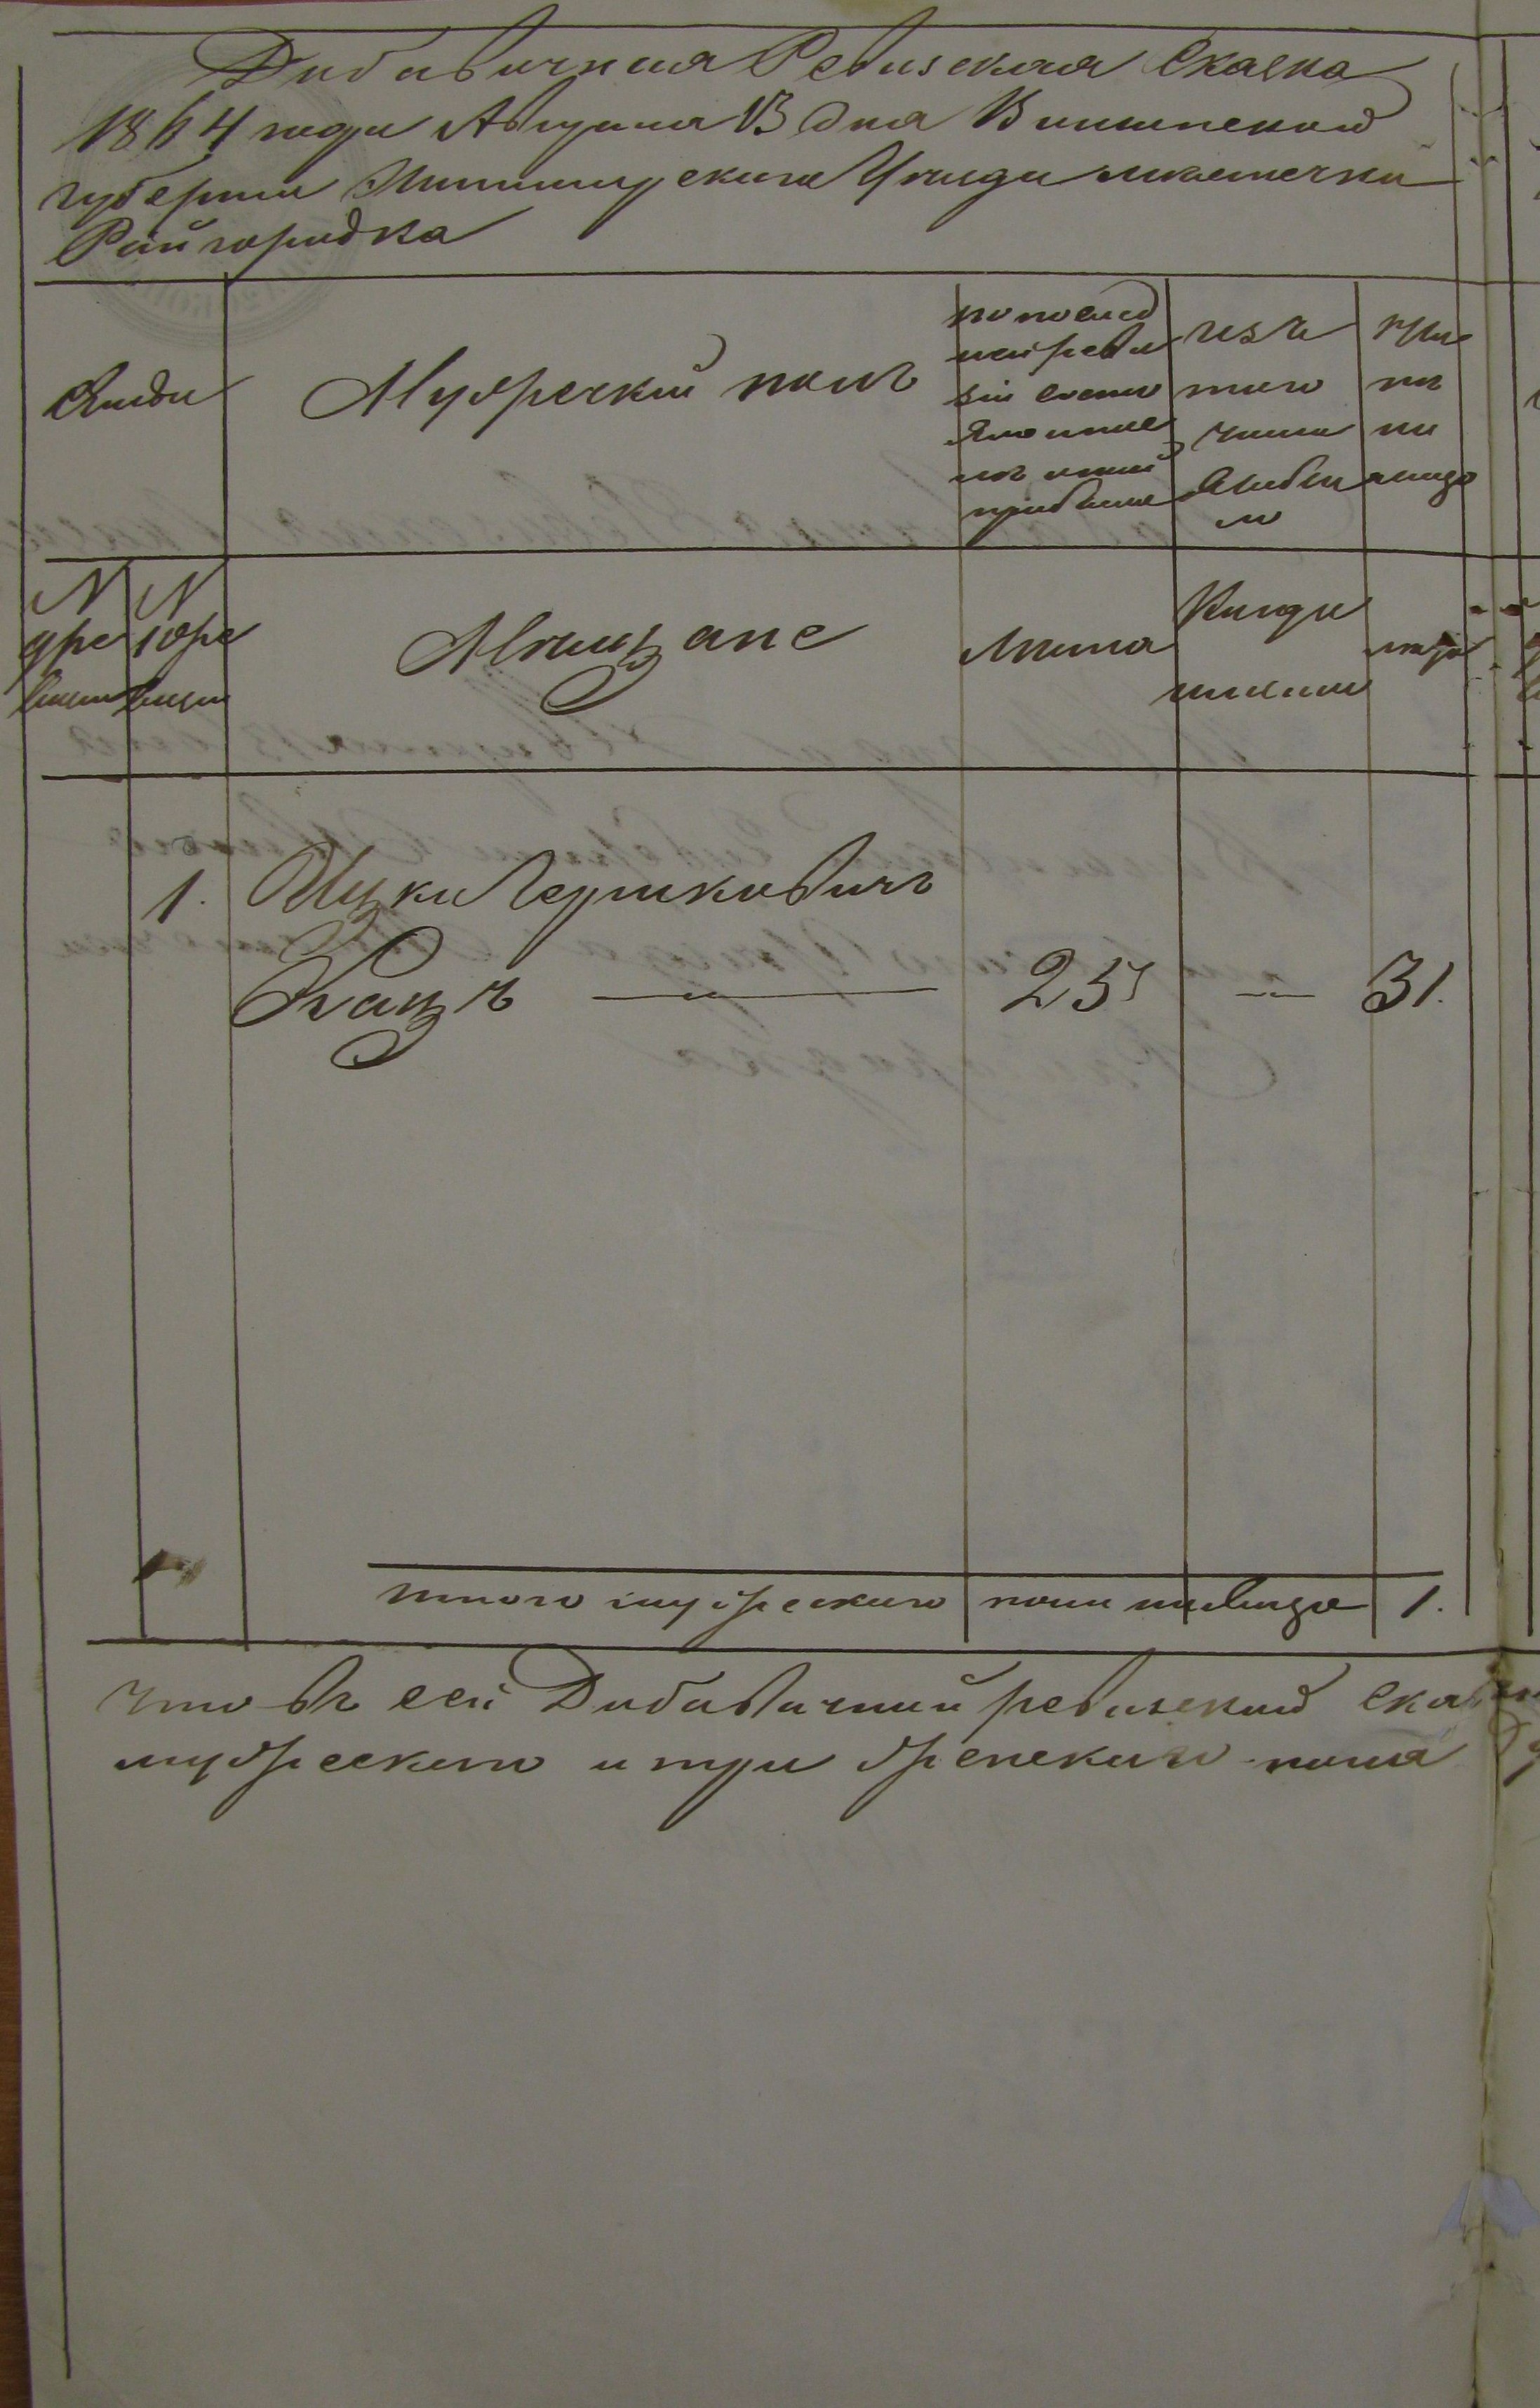 Дабавочная Ревизская Скаска
1864 года Августа 13 дня Волынской
губернии Житомирского Уезда местечка
Райгородка
Мужеский полъ
по послед
ней реви
зіи состо
яло и пос
ле оной
прибыло
изъ
того
числа
выбы
ло
ны
не
на лицо
№
№
Мещане
лета
Когда
имено
лета
1. Ицко Гершковичъ
Кацъ
25
31.
итого мужескаго пола на лицо 1.
что въ сей Дабавочной ревизской ска
мужескаго и три женскаго пола